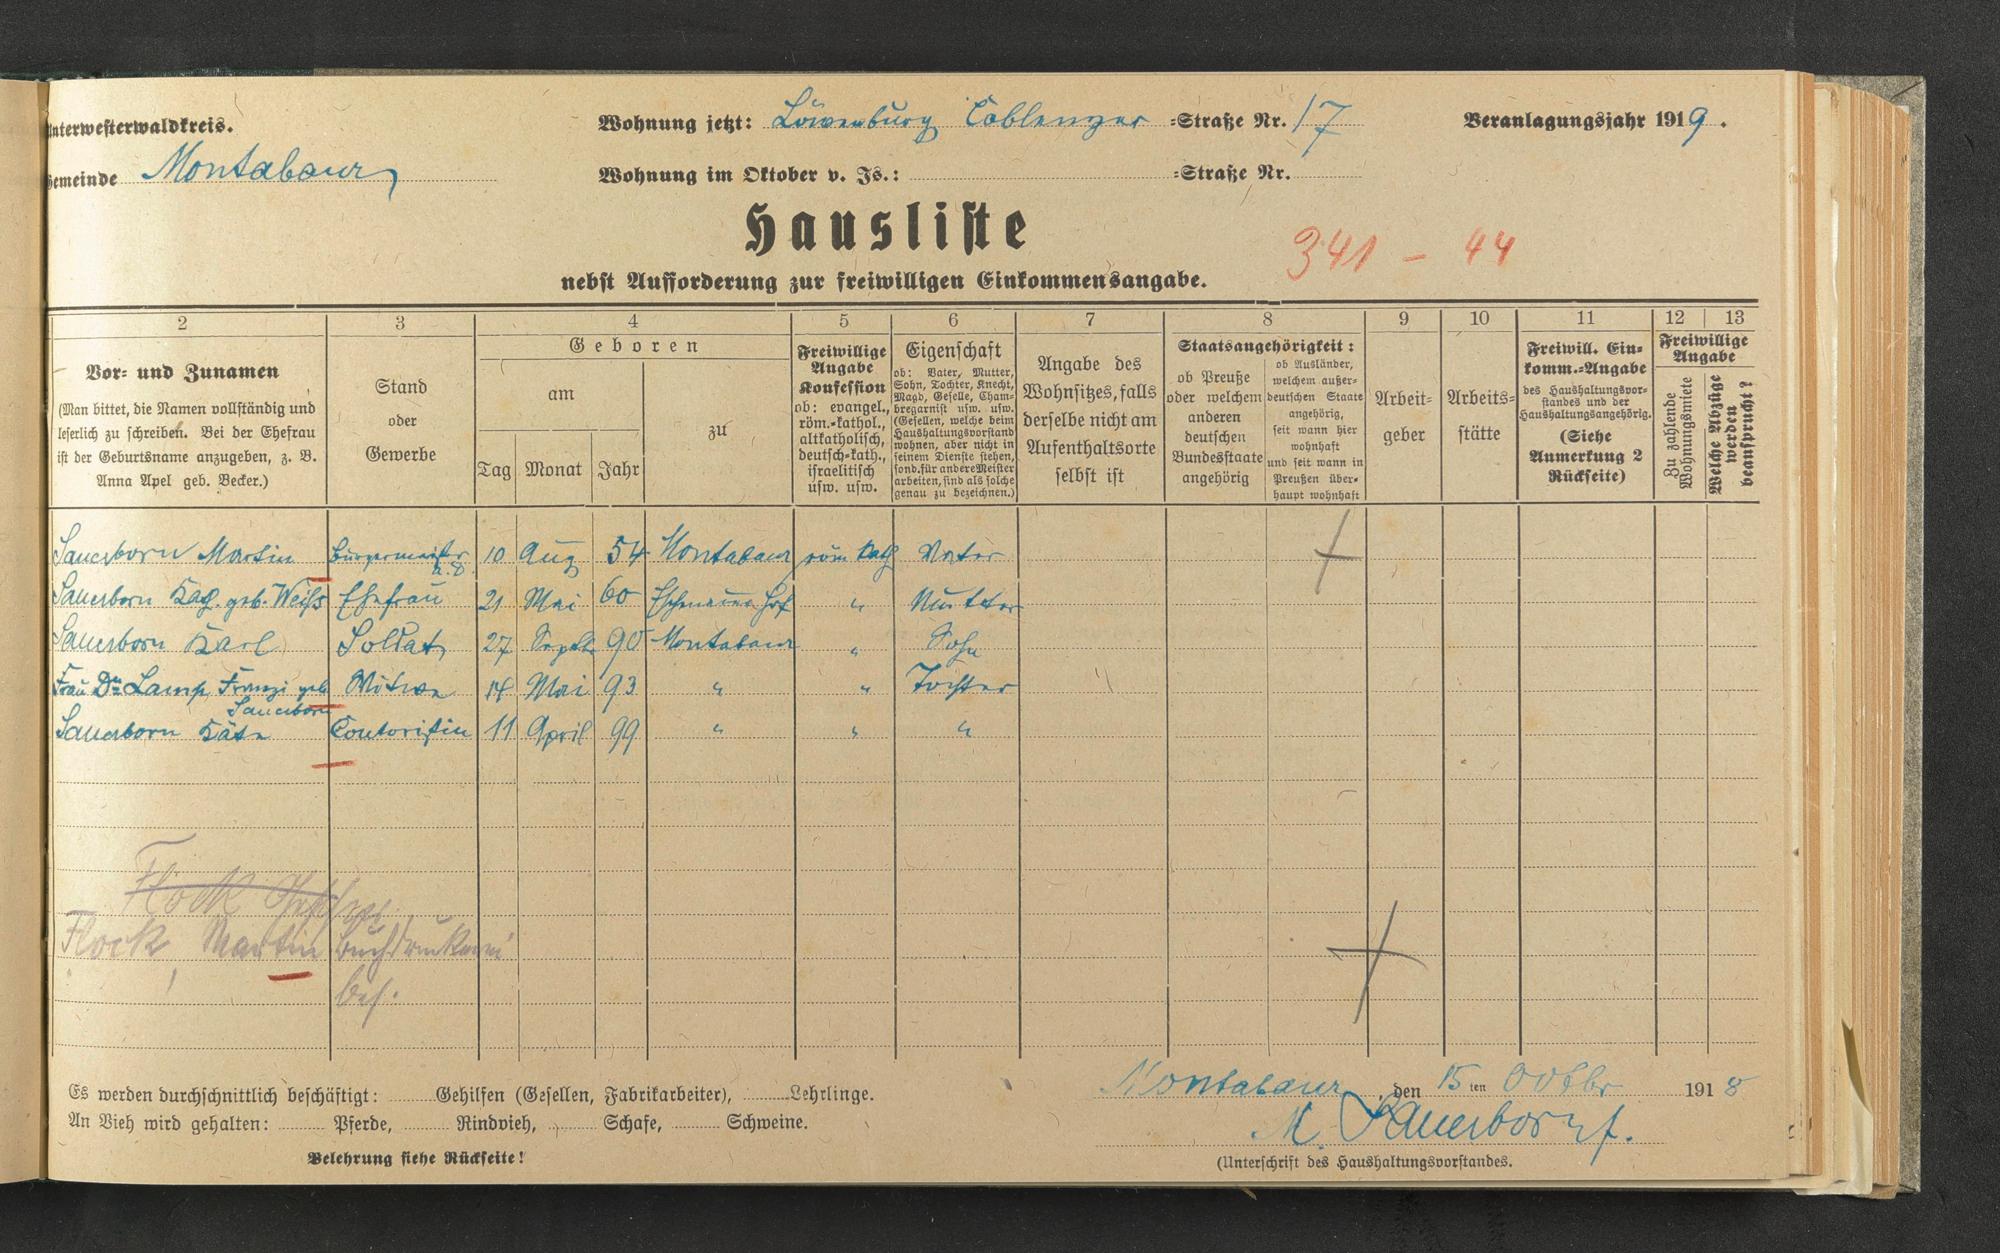 Unterwesterwaldkreis.
Gemeinde Montabaur
Wohnung jetzt: Löwenburg Coblenzer =Straße Nr. 17
Veranlagungsjahr 1919.
Wohnung im Oktober v. Js.: =Straße Nr.
Hausliste
341 - 44
nebst Aufforderung zur freiwilligen Einkommensangabe.
2 3 4 5 6 7 8 9 10 11 12 13
Vor- und Zunamen
(Man bittet, die Namen vollständig und
leserlich zu schreiben. Bei der Ehefrau
ist der Geburtsname anzugeben, z. B.
Anna Apel geb. Becker.)
Stand
oder
Gewerbe
Geboren
am
Tag Monat Jahr
zu
Freiwillige
Angabe
Konfession
ob: evangel.,
röm.-kathol.,
altkatholisch,
deutsch-kath.,
israelitisch
usw. usw.
Eigenschaft
ob: Vater, Mutter,
Sohn, Tochter, Knecht,
Magd, Geselle, Cham-
bregarnist usw. usw.
(Gesellen, welche beim
Haushaltungsvorstand
wohnen, aber nicht in
seinem Dienste stehen,
sond. für andere Meister
arbeiten, sind als solche
genau zu bezeichnen.)
Angabe des
Wohnsitzes, falls
derselbe nicht am
Aufenthaltsorte
selbst ist
Staatsangehörigkeit:
ob Preuße
oder welchem
anderen
deutschen
Bundesstaate
angehörig
ob Ausländer,
welchem außer-
deutschen Staate
angehörig,
seit wann hier
wohnhaft
und seit wann in
Preußen über-
haupt wohnhaft
Arbeit-
geber
Arbeits-
stätte
Freiwill. Ein-
komm.-Angabe
des Haushaltungsvor-
standes und der
Haushaltungsangehörig.
(Siehe
Anmerkung 2
Rückseite)
Freiwillige
Angabe
Zu zahlende
Wohnungsmiete
Welche Abzüge
werden
beansprucht?
Sauerborn Martin Bürgermeister a. D. 10 Aug 54 Montabaur röm kath Vater
Sauerborn Kath. geb. Weiß Ehefrau 21 Mai 60 Mutter
Sauerborn Karl Soldat 27 Septb 90 Montabaur " Sohn
Frau Dr. Lamp, Franzi geb Witwe 14 Mai 93 " " Tochter
Sauerborn
Sauerborn Käte Contoristin 11 April 99 " " "
Flock
Flock, Martin Buchdruckerei
bes.
Es werden durchschnittlich beschäftigt: Gehilfen (Gesellen, Fabrikarbeiter), Lehrlinge.
An Vieh wird gehalten: Pferde, Rindvieh, Schafe, Schweine.
Belehrung siehe Rückseite!
Montabaur, den 15ten Octbr 1918
M. Sauerborn
(Unterschrift des Haushaltungsvorstandes.